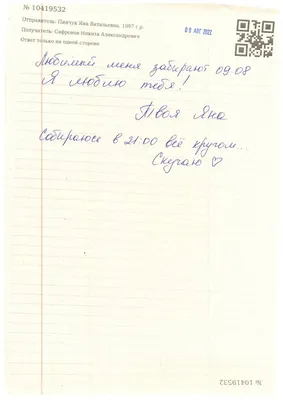 № 10419532
Отправитель: Пинчук Яна Витальевна, 1997 г.р.
Получатель: Сафронов Никита Александрович
Ответ только на одной стороне
09 АВГ 2022
Любимый меня забирают 09.08
Я люблю тебя!
Твоя Яна
Собираюсь в 21:00 всё кругом..
Скучаю ♡
№ 10419532